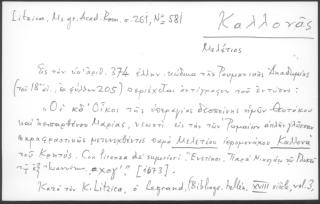 Litzica, Ms gr. Acad. Rom. σ. 261, Nº 581
Καλλονᾶς
Μελέτιος
Εἰς τὸν ὑπ' ἀριθ. 374 ἑλλην. κώδικα τῆς Ρουμανικῆς Ἀκαδημίας
(τοῦ 18ου αἰ., ἐκ φύλλων 205) περιέχεται ἀντίγραφον τοῦ ἐντύπου:
"Οἱ κδ' Οἶκοι τῆς ὑπεραγίας δεσποίνης ἡμῶν Θεοτόκου
καὶ ἀειπαρθένου Μαρίας, νεωστὶ εἰς τὴν τῶν Ῥωμαίων ἁπλὴν γλῶσσαν
παραφραστικῶς μετενεχθέντες παρὰ Μελετίου ἱερομονάχου Καλλονᾶ
τοῦ Κρητός. Con licenza de' superiori. Ἐνετίησι, Παρὰ Νικολάῳ τῷ Γλυκεῖ
τῷ ἐξ Ἰωαννίνων. ͵αχογ'" [1673].
Κατὰ τὸν K. Litzica, ὁ Legrand, (Bibliogr. hellén. XVIII siècle, vol. 3,